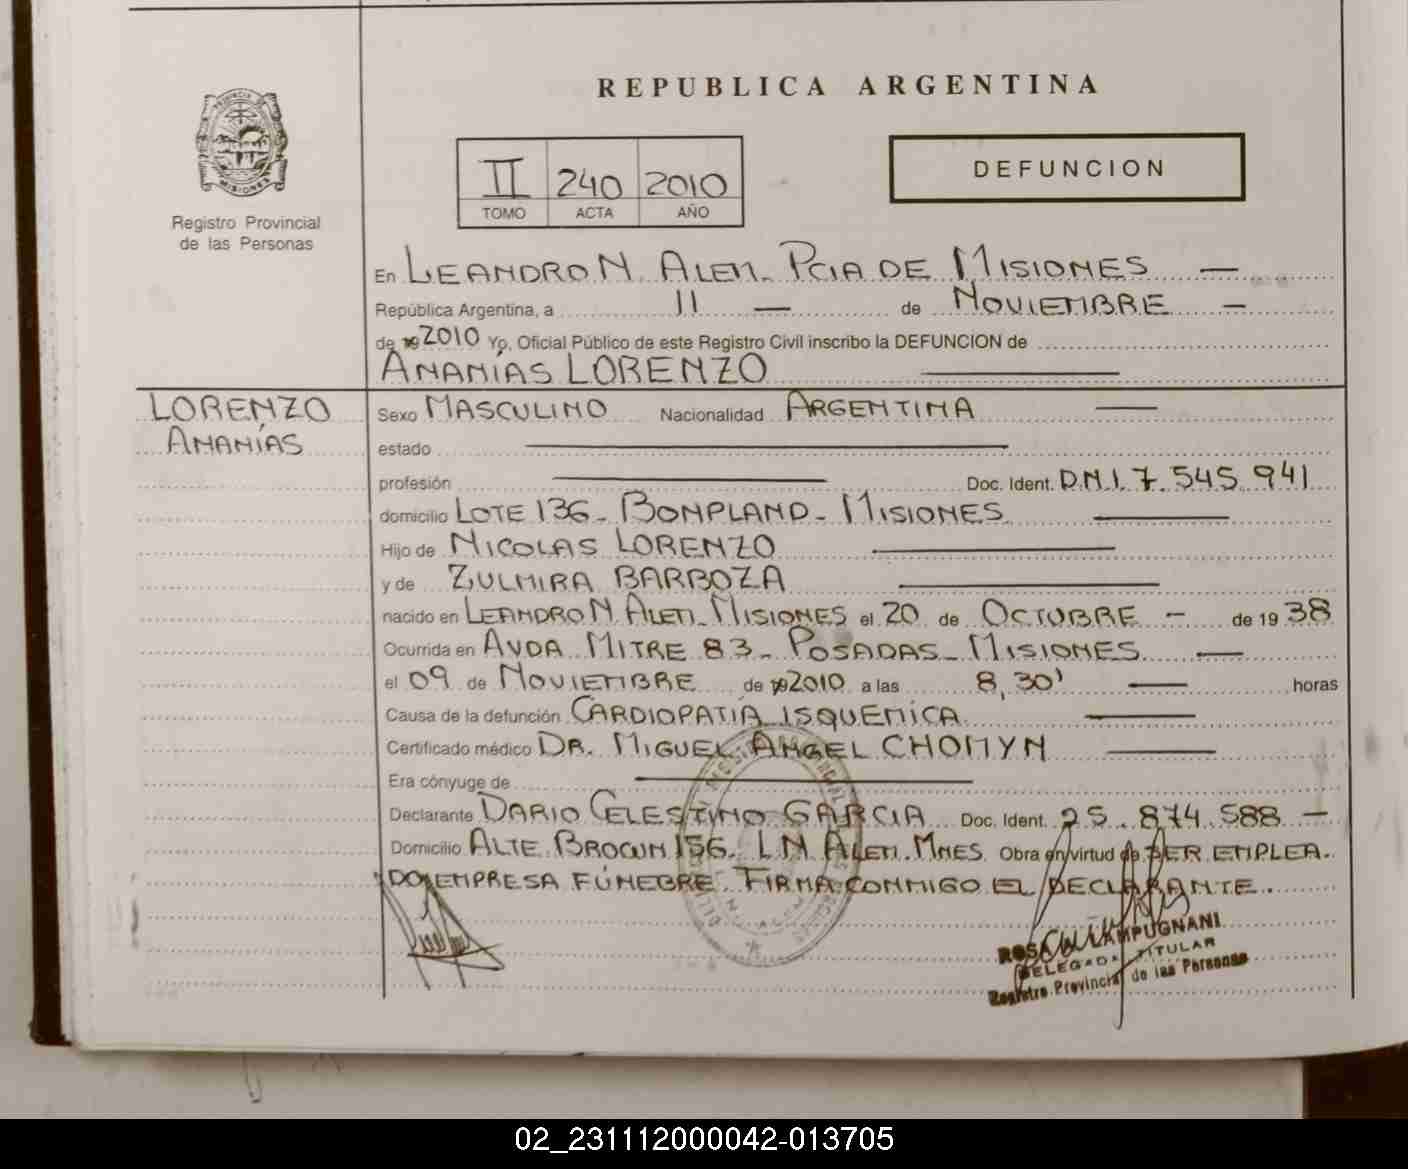 REPUBLICA ARGENTINA
PROVINCIA DE
MISIONES
Registro Provincial
de las Personas
II 240 2010
TOMO ACTA AÑO
DEFUNCION
En LEANDRO N. ALEM - PCIA DE MISIONES —
República Argentina, a 11 — de NOVIEMBRE —
de 19 2010 Yo, Oficial Público de este Registro Civil inscribo la DEFUNCION de
ANANÍAS LORENZO
LORENZO
ANANÍAS
Sexo MASCULINO Nacionalidad ARGENTINA —
estado —
profesión — Doc. Ident. D.N.I. 7.545.941
domicilio LOTE 136 - BONPLAND - MISIONES —
Hijo de NICOLAS LORENZO —
y de ZULMIRA BARBOZA —
nacido en LEANDRO N. ALEM - MISIONES el 20 de OCTUBRE - de 19 38
Ocurrida en AVDA MITRE 83 - POSADAS - MISIONES —
el 09 de NOVIEMBRE de 19 2010 a las 8,30' — horas
Causa de la defunción CARDIOPATÍA ISQUEMICA —
Certificado médico DR. MIGUEL ANGEL CHOMYN —
Era cónyuge de —
Declarante DARIO CELESTINO GARCIA Doc. Ident. 25.874.588 —
Domicilio ALTE BROWN 156 - L N ALEM. MNES. Obra en virtud de SER EMPLEA-
DO EMPRESA FÚNEBRE. FIRMA CONMIGO EL DECLARANTE.
DELEGADA TITULAR
Registro Provincial de las Personas
02_231112000042-013705